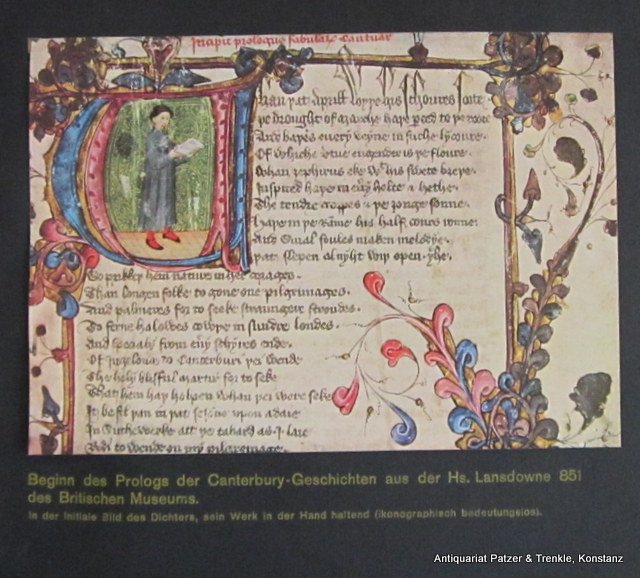 Incipit prologus fabularum Cantuar
Whan þat Aprill wyþ his schoures soote
þe drought of Marche haþ perced to þe roote
And baþes euery veyne in suche lycoure.
Of whiche vertue engendred is þe floure.
Whan zephirus eke wiþ his
Inspired haþe in euery holte & hethe.
The tendre croppes & þe ȝonge sonne.
Haþe in þe Rame his half cours ronne.
And smal foules maken melodye.
þat slepen al nyht wiþ open yhe.
So prikkeþ hem nature in her corages.
Than longen folke to gone one pilgrimages.
And palmeres for to seeke straungere strondes.
To ferne halowes couþe in sundre londes.
And specialy from euery schyres ende.
Of Ingelond to Canterburi þei wende
The holy blisful martir for to seke
That hem haþ holpen whan þei were seke
It befel þan in þat sesone upon a daie
In Suthewerke att þe tabard as I laie
Redi to wende on my pilgrimage.
Beginn des Prologs der Canterbury-Geschichten aus der Hs. Lansdowne 851
des Britischen Museums.
In der Initiale Bild des Dichters, sein Werk in der Hand haltend (ikonographisch bedeutungslos).
Antiquariat Patzer & Trenkle, Konstanz